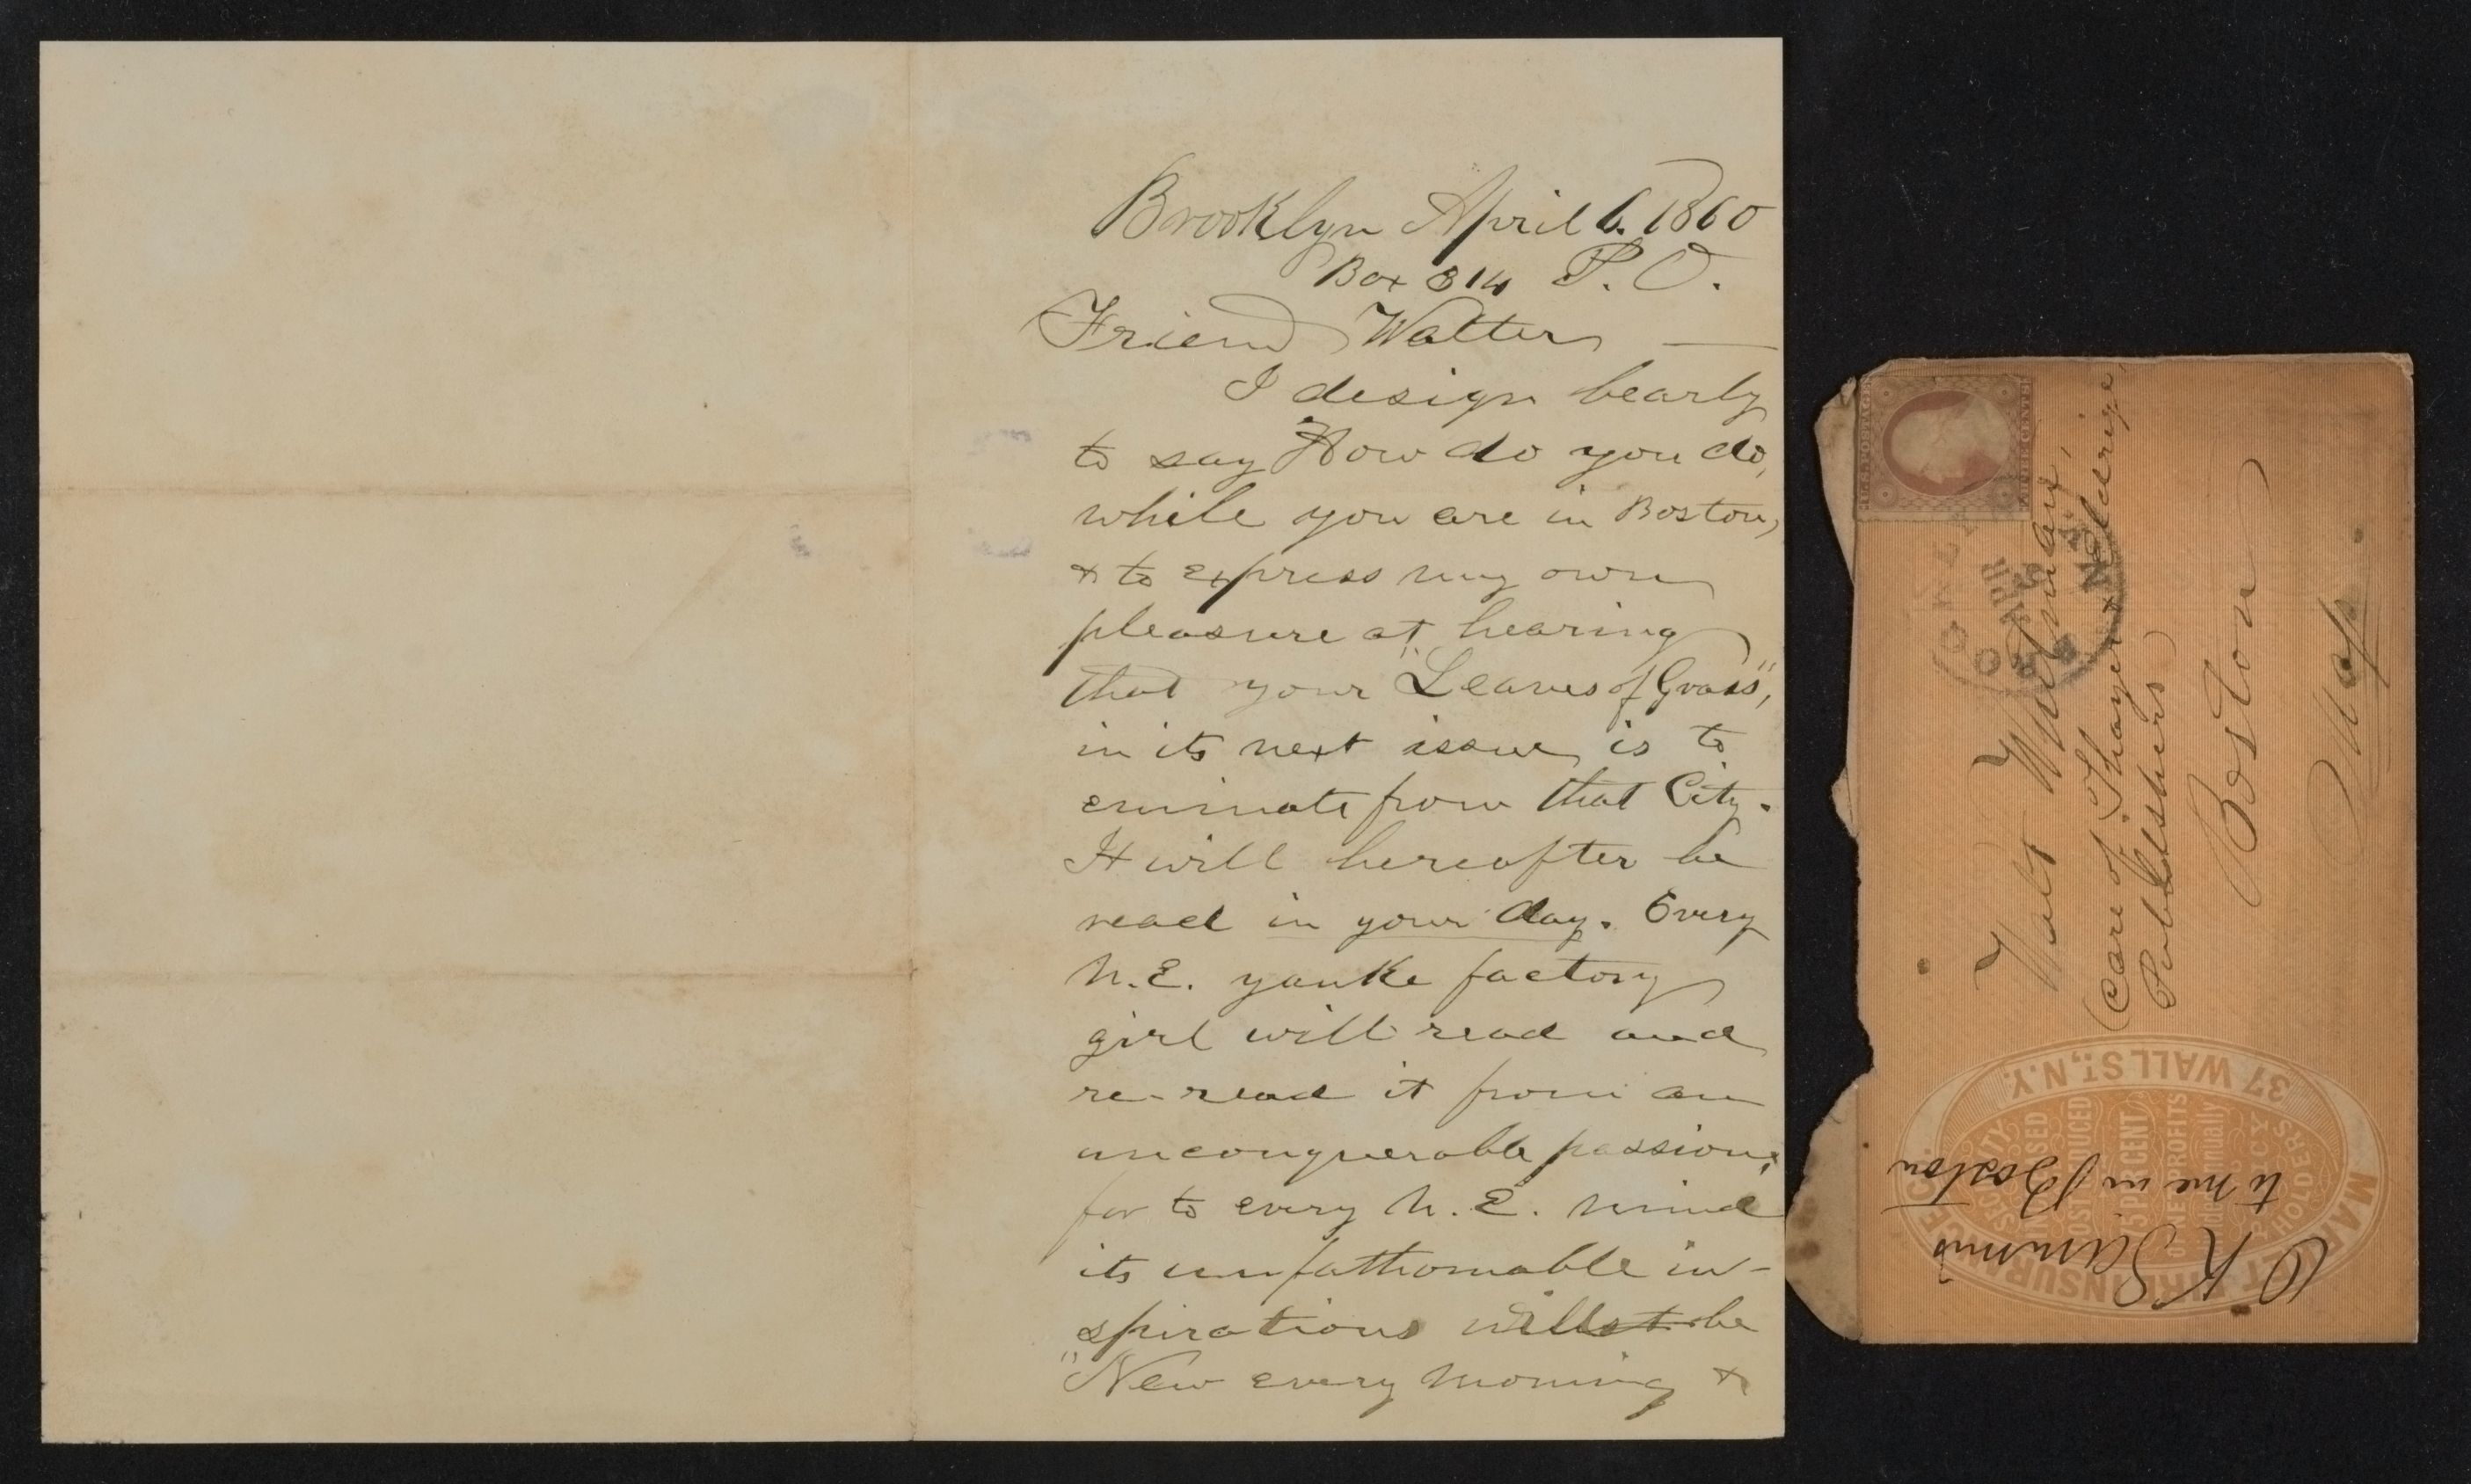 Brooklyn April 6. 1860
Box 314 P. O.
Friend Walter
I design bearly
to say How do you do,
while you are in Boston,
& to express my own
pleasure at hearing
that your "Leaves of Grass",
in its next issue, is to
eminate from that City.
It will hereafter be
read in your day. Every
N.E. yanke factory
girl will read and
re-read it from an
unconquerable passion,
for to every N. E. mind
its unfathomable in-
spirations will be
"New every morning &
U.S. POSTAGE
THREE CENTS
BROOKLYN
APR
N.Y.
Walt Whitman,
(Care of Thayer & Eldridge,
Publishers)
Boston
Mass.
MARKET FIRE INSURANCE CO.
37 WALL ST., N.Y.
SECURITY
INCREASED
COST REDUCED
75 PER CENT
OF THE PROFITS
divided annually
TO POLICY
HOLDERS
O K Sammis
to me in Boston